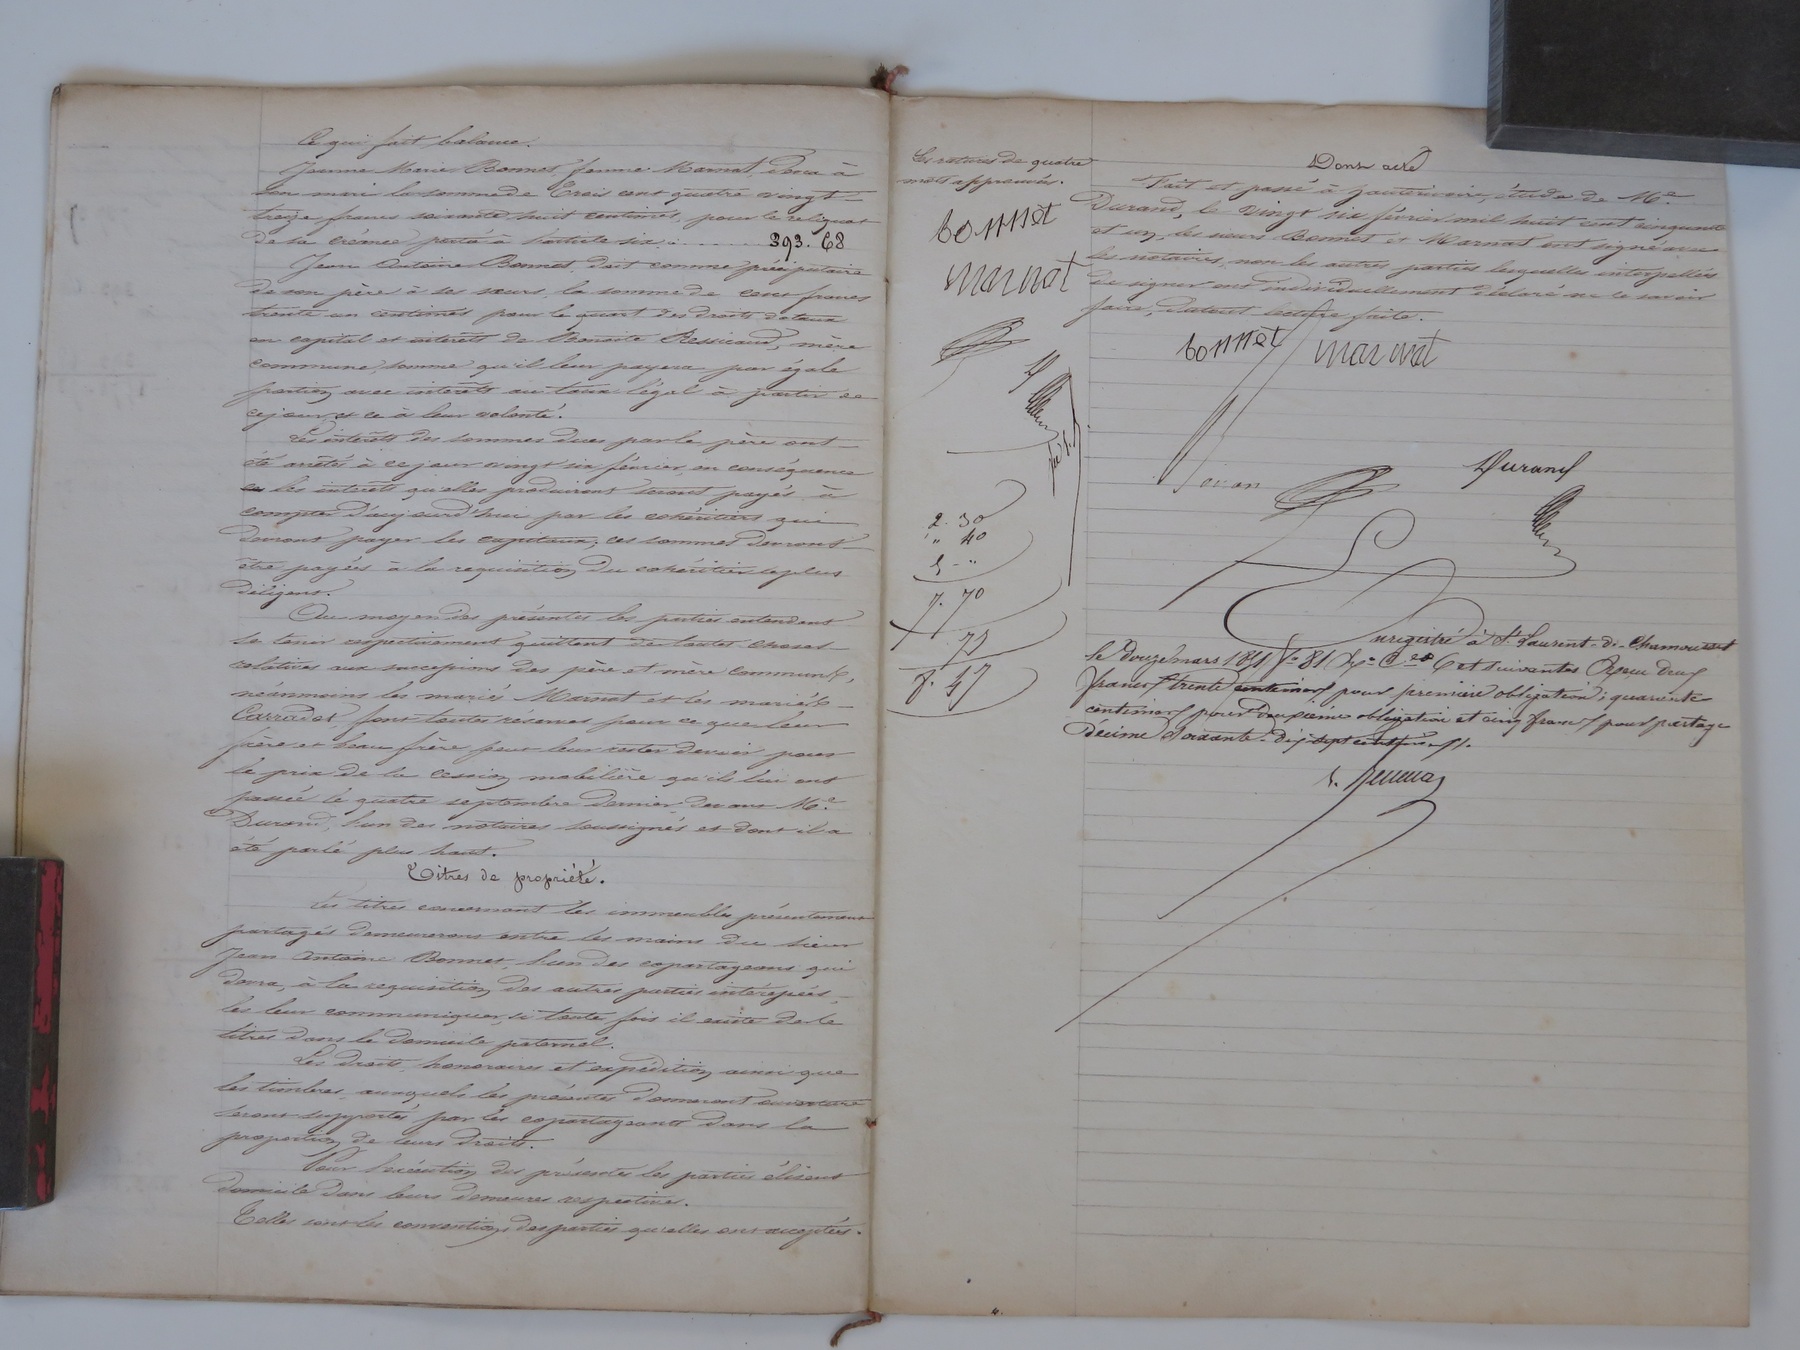 Ce qui fait balance.
Jeanne Marie Bonnet, femme Marnat, devra à
son mari la somme de Trois cent quatre vingt
treize francs soixante huit centimes, pour le reliquat
de sa créance porté à l'article six . . . . . 393. 68
Jean Antoine Bonnet, doit comme préciputaire
de son père à ses sœurs, la somme de cent francs
trente un centimes pour le quart des droits dotaux
en capital et intérêts de Benoite Ressicaud, mère
commune, somme qu'il leur payera par égale
portion avec intérêts au taux légal à partir de
ce jour et ce à leur volonté.
Les intérêts des sommes dues par le père ont
été arrêtés à ce jour vingt six février, en conséquence
les intérêts qu'elles produiront seront payés à
compter d'aujourd'hui par les cohéritiers qui
devront payer les capitaux, ces sommes devront
être payées à la requisition du cohéritier le plus
diligent.
Au moyen des présentes les parties entendent
se tenir respectivement quittent de toutes choses
relatives aux successions des père et mère communs,
néanmoins les mariés Marnat et les mariés
Carradot font toutes réserves pour ce que leur
frère et beau frère peut leur rester devoir pour
le prix de la cession mobilière qu'ils lui ont
passée le quatre septembre dernier devant Me
Durand, l'un des notaires soussignés et dont il a
été parlé plus haut.
Titres de propriété.
Les titres concernant les immeubles présentement
partagés demeureront entre les mains du sieur
Jean Antoine Bonnet, l'un des copartageans qui
devra, à la requisition des autres parties intéressées,
les leur communiquer, si toute fois il existe de le
titres dans le domicile paternel.
Les droits, honoraires et expédition ainsi que
les timbres, auxquels les présentes donneront ouverture
seront supportés par les copartageants dans la
proportion de leurs droits.
Pour l'exécution des présentes les parties élisent
domicile dans leurs demeures respectives.
Telles sont les conventions des parties qu'elles ont acceptées.
Les ratures de quatre
mots approuvés.
bonnet
marnat
2. 30
" 40
5 - "
7. 70
77
8. 47
Dont acte
Fait et passé à , étude de Me
Durand, le vingt six février mil huit cent cinquante
et un, les sieurs Bonnet et Marnat ont signé avec
les notaires, non les autres parties lesquelles interpellées
de signer ont individuellement déclaré ne le savoir
faire, d'autant lecture faite.
bonnet marnat
Durand
Enregistré à St Laurent-de-Chamousset
le douze mars 1851 fo 81 Ro Ces 6 et suivantes Reçu deux
francs trente centimes pour première obligation; quarante
centimes pour deuxième obligation et cinq francs pour partage
décime soixante-dix sept centimes.